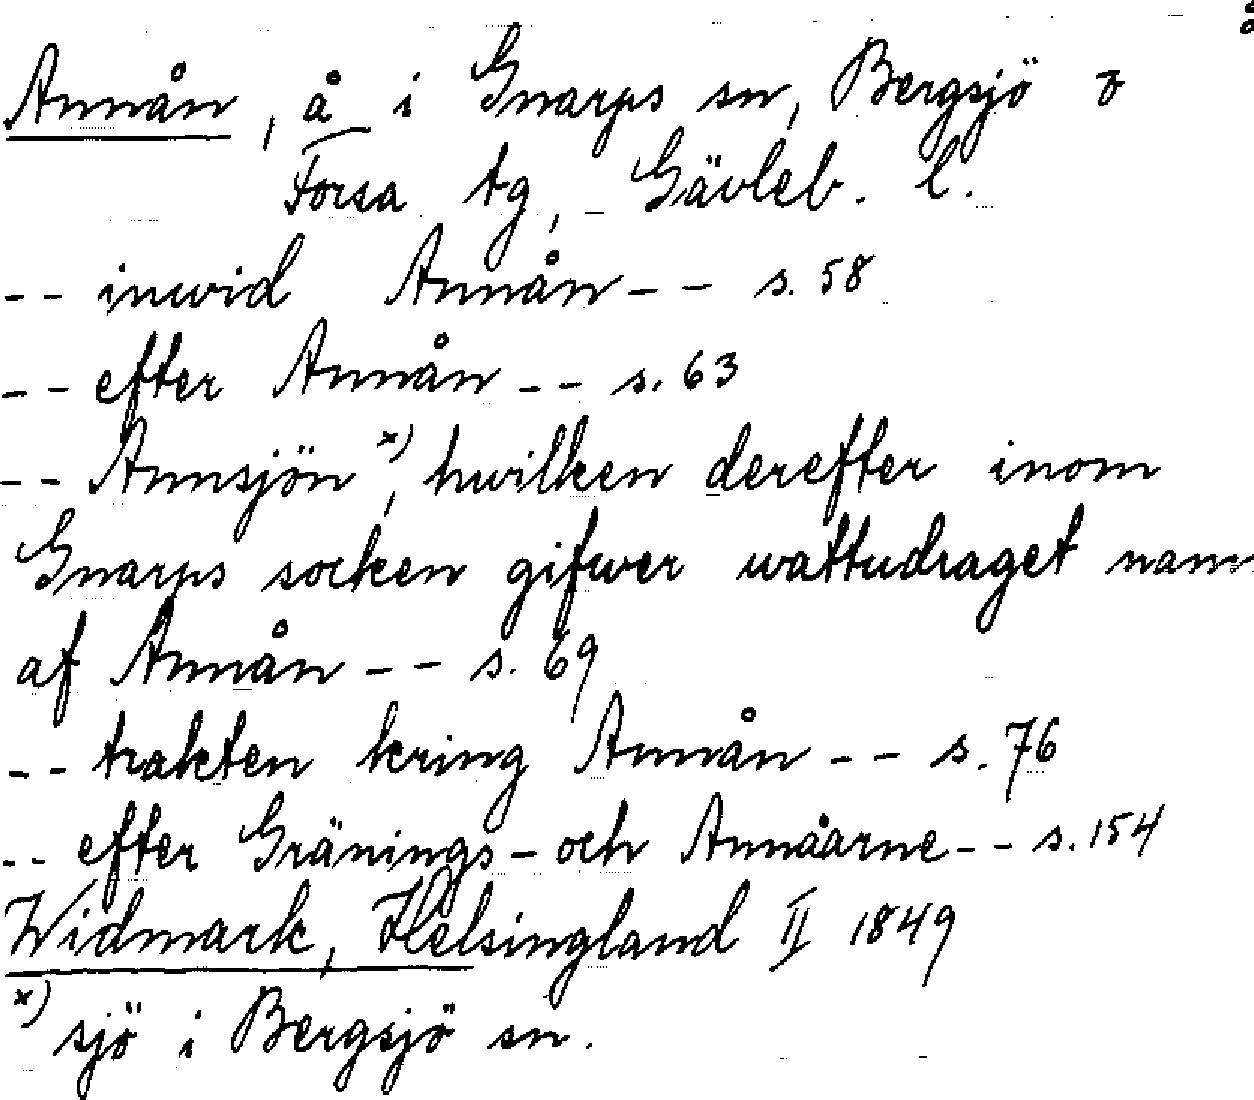 Annån, å i Gnarps sn, Bergsjö o
Forsa tg, Gävleb. l.
-- inwid Annån -- s. 58
-- efter Annån -- s. 63
-- Annsjön x), hwilken derefter inom
Gnarps socken gifwer wattudraget namn
af Annån -- s. 69
-- trakten kring Annån -- s. 76
-- efter Gränings- och Annåarne -- s. 154
Widmark, Helsingland II 1849
x) sjö i Bergsjö sn.